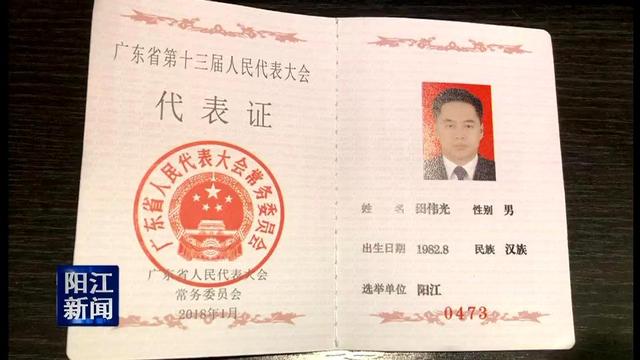 广东省第十三届人民代表大会
代表证
广东省人民代表大会常务委员会
广东省人民代表大会
常务委员会
2018年1月
姓 名 田伟光 性别 男
出生日期 1982.8 民族 汉族
选举单位 阳江
0473
阳江
新闻